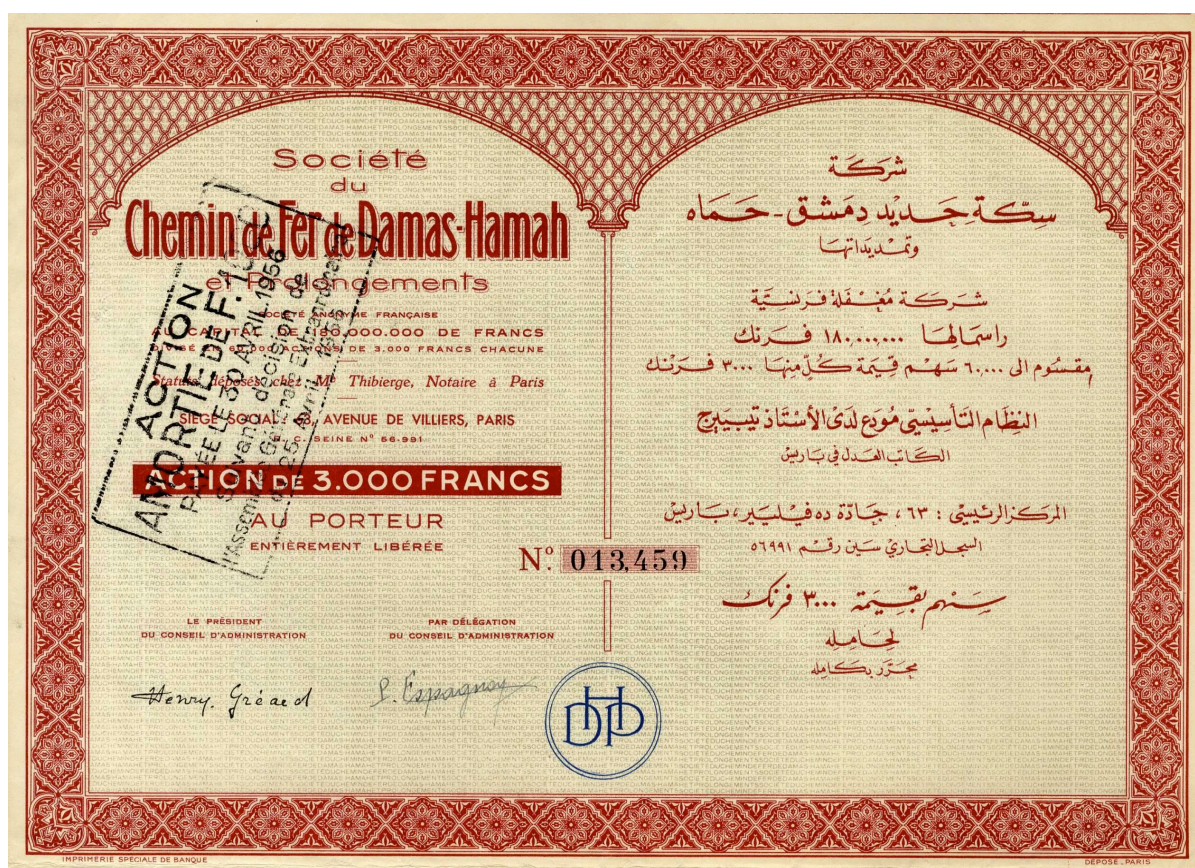 Société
du
Chemin de Fer de Damas-Hamah
et Prolongements
SOCIÉTÉ ANONYME FRANÇAISE
AU CAPITAL DE 180.000.000 DE FRANCS
DIVISÉ EN 60.000 ACTIONS DE 3.000 FRANCS CHACUNE
Statuts déposés chez Me Thibierge, Notaire à Paris
SIÈGE SOCIAL AVENUE DE VILLIERS, PARIS
R.C. SEINE Nº 56.991
ACTION DE 3.000 FRANCS
AU PORTEUR
ENTIÈREMENT LIBÉRÉE
LE PRÉSIDENT
DU CONSEIL D'ADMINISTRATION
PAR DÉLÉGATION
DU CONSEIL D'ADMINISTRATION
Henry. Gréard
P. Espagnoy
ACTION
AMORTIE DE F.
PAYÉE LE 30 AVRIL 1956
Suivant décision de
l'Assemblée Générale Extraordinaire
du 25 Avril
Nº. 013,459
شركة
سكة حديد دمشق - حماه
وتمديداتها
شركة مغفلة فرنسية
راسمالها ١٨٠,٠٠٠,٠٠٠ فرنك
مقسوم الى ٦٠,٠٠٠ سهم قيمة كل منها ٣٠٠٠ فرنك
النظام التأسيسي مودع لدى الأستاذ تيبييرج
الكاتب العدل في باريس
المركز الرئيسي : ٦٣ ، جادة ده فيليير ، باريس
السجل التجاري سين رقم ٥٦٩٩١
سهم بقيمة ٣٠٠٠ فرنك
لحامله
محرر بكامله
DHP
IMPRIMERIE SPÉCIALE DE BANQUE
DÉPOSÉ _ PARIS